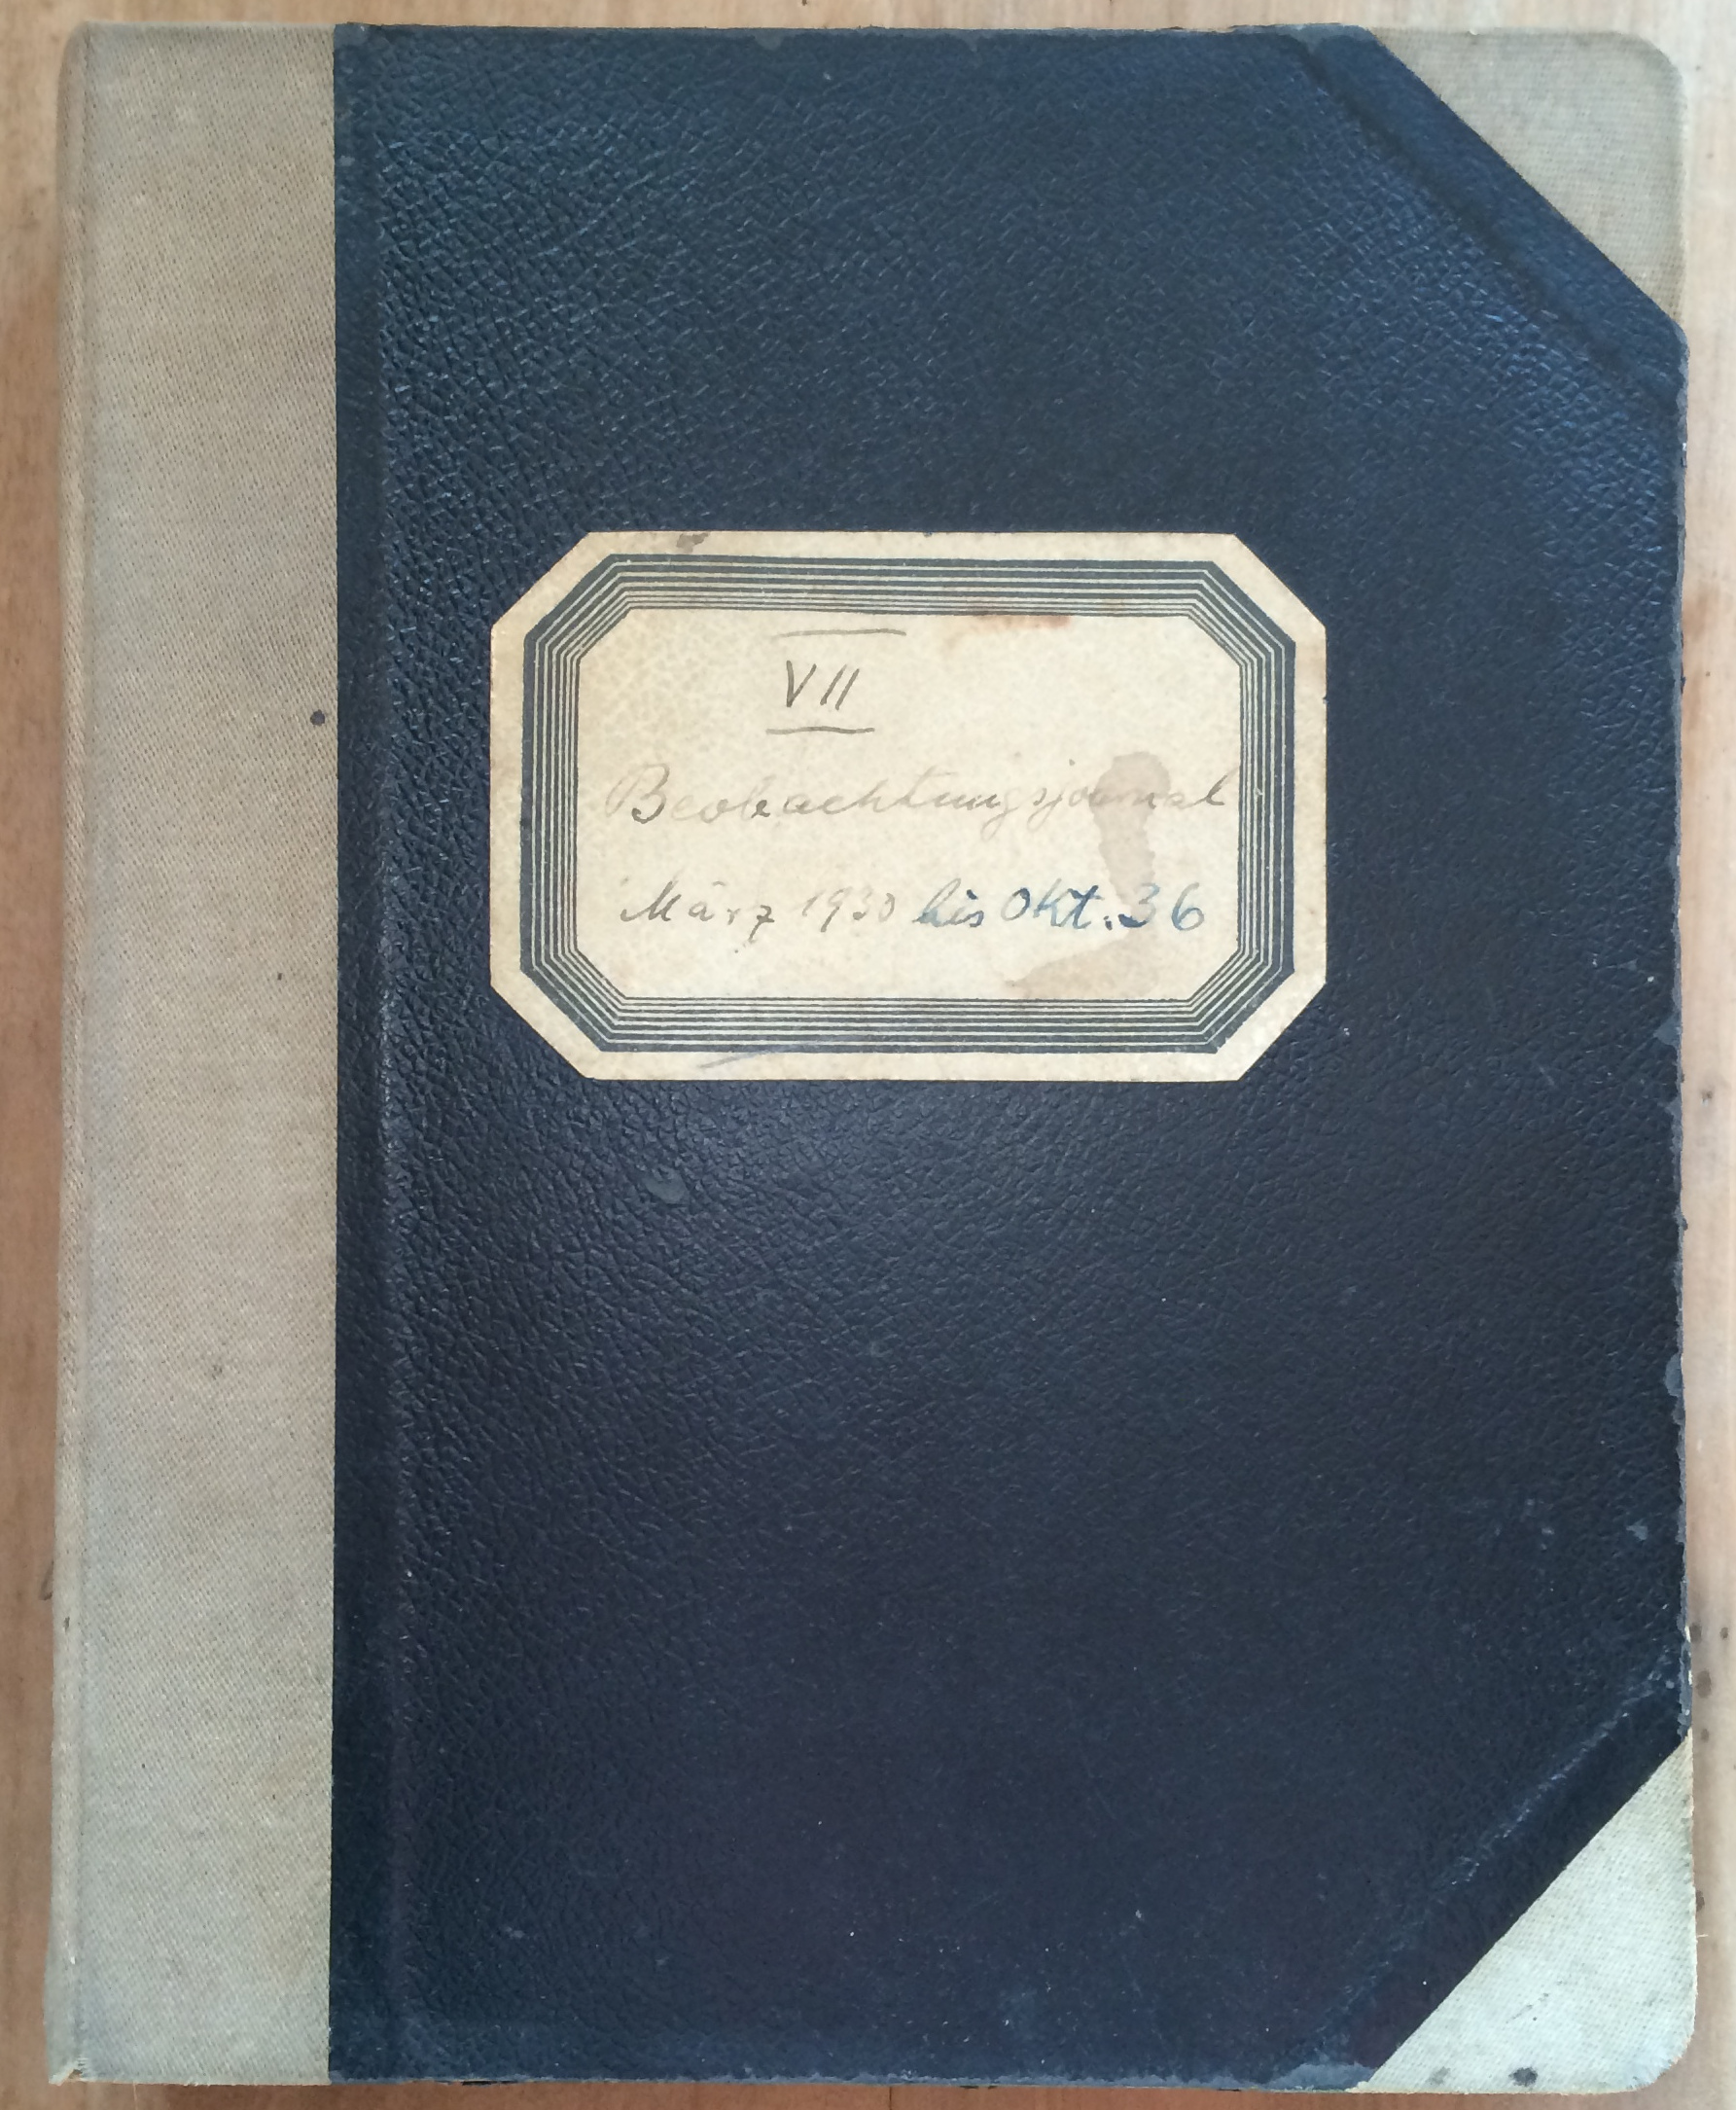 VII
Beobachtungsjournal
März 1930 bis Okt. 36